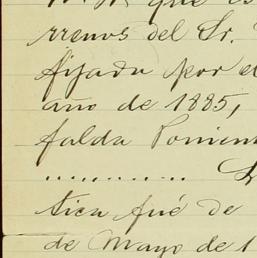 que es
rrenos del Sr.
fijada por el
año de 1885,
falda Ponient
............
tica fué de
de Mayo de 1